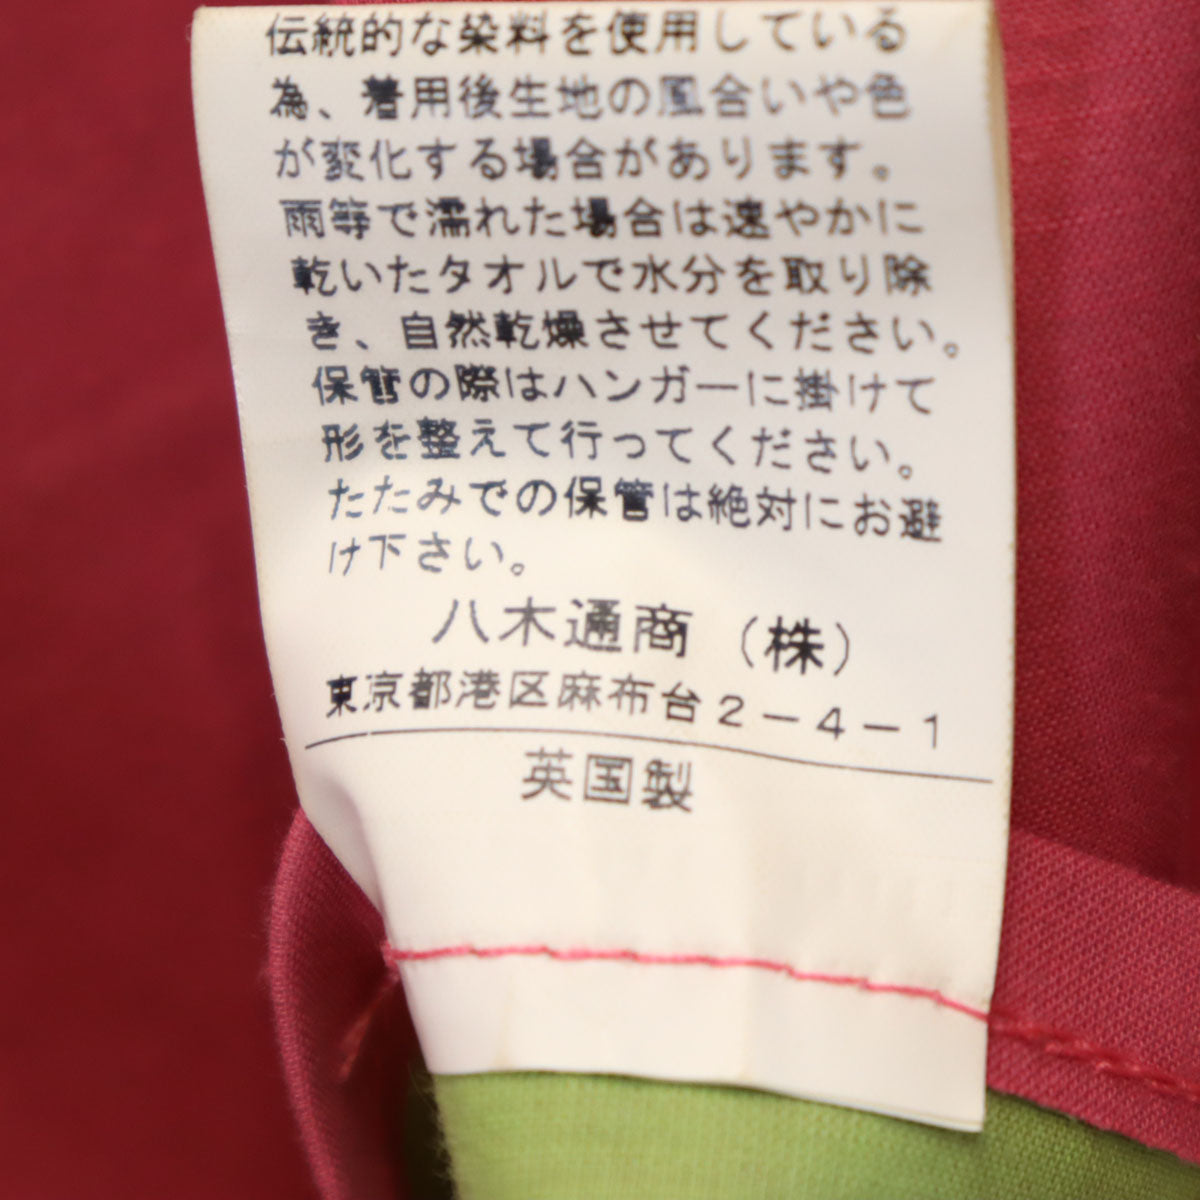 伝統的な染料を使用している
為、着用後生地の風合いや色
が変化する場合があります。
雨等で濡れた場合は速やかに
乾いたタオルで水分を取り除
き、自然乾燥させてください。
保管の際はハンガーに掛けて
形を整えて行ってください。
たたみでの保管は絶対にお避
け下さい。
八木通商（株）
東京都港区麻布台２－４－１
英国製